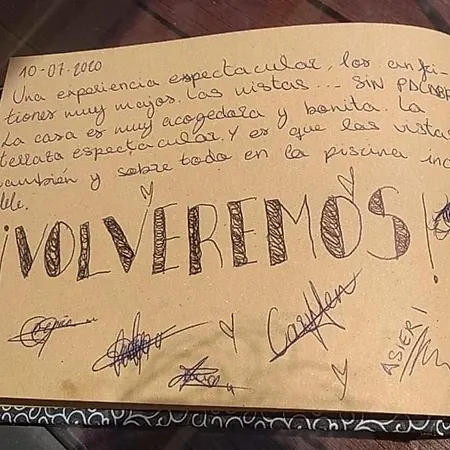 10-07-2020
Una experiencia espectacular, los anfi-
tiones muy majos. Las vistas... SIN PALABR
La casa es muy acogedora y bonita. La
terraza espectacular. Y es que las vistas
también y sobre todo en la piscina inc
ible.
¡VOLVEREMOS!
Carmen
ASIER